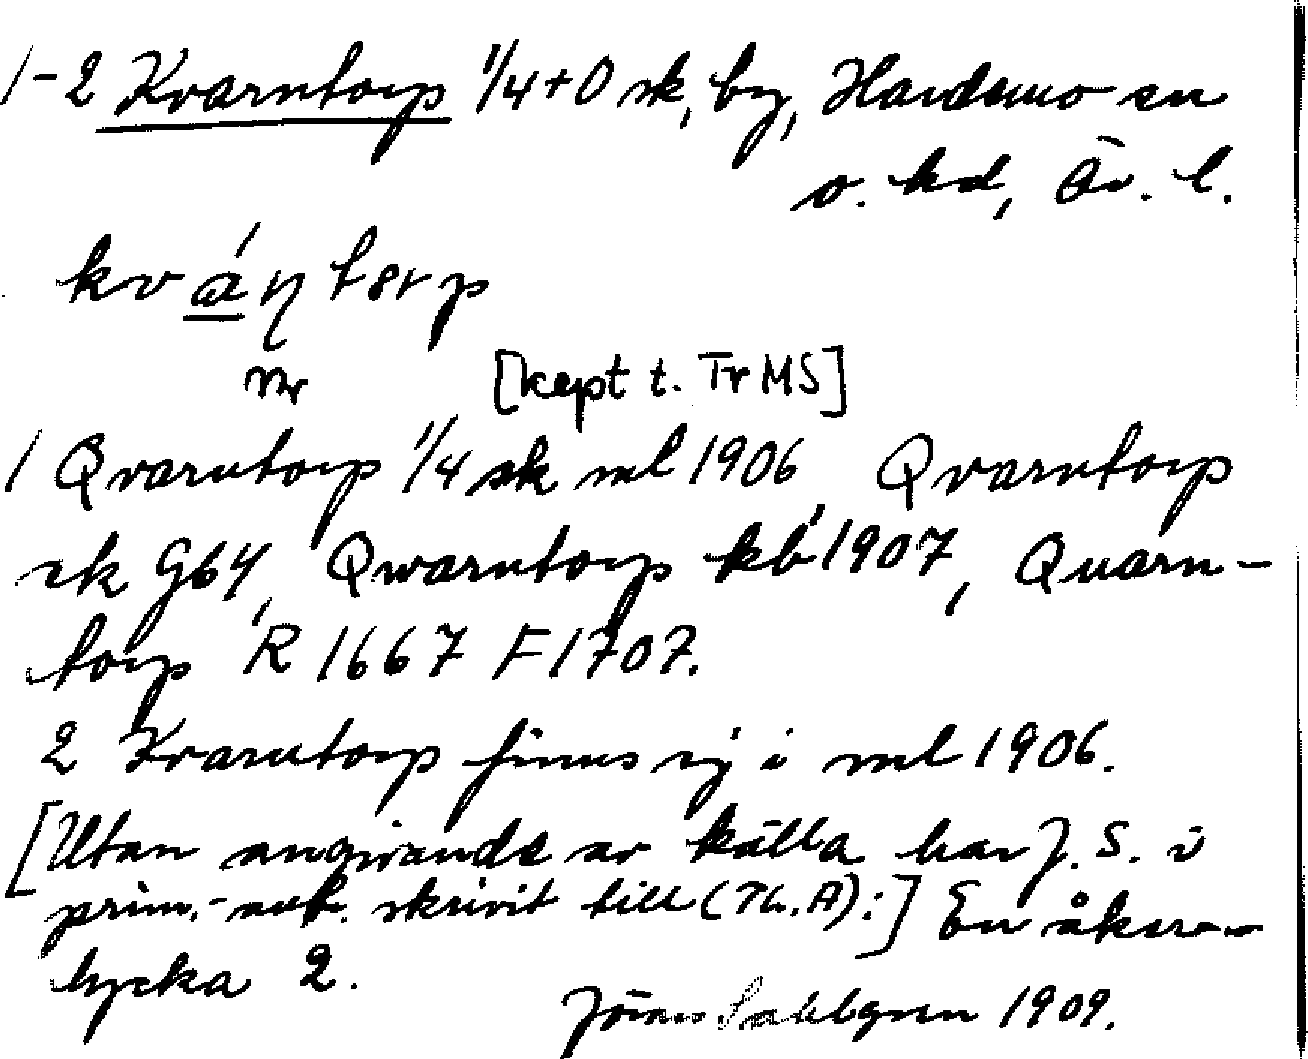 1-2 Kvarntorp 1/4+0 sk, by, Hardemo sn
o. hd, Ör. l.
kvá̱ṇtorp
nr [kept t. Tr MS]
1 Qvarntorp 1/4 sk ml 1906, Qvarntorp
sk G64, Qwarntorp kb 1907, Quarn-
torp R 1667 F 1707.
2 Kvarntorp finns ej i ml 1906.
[Utan angivande av källa har J. S. i
prim.- skrivit till (Th. A):] En åker-
lycka 2.
Jöran Sahlgren 1909.